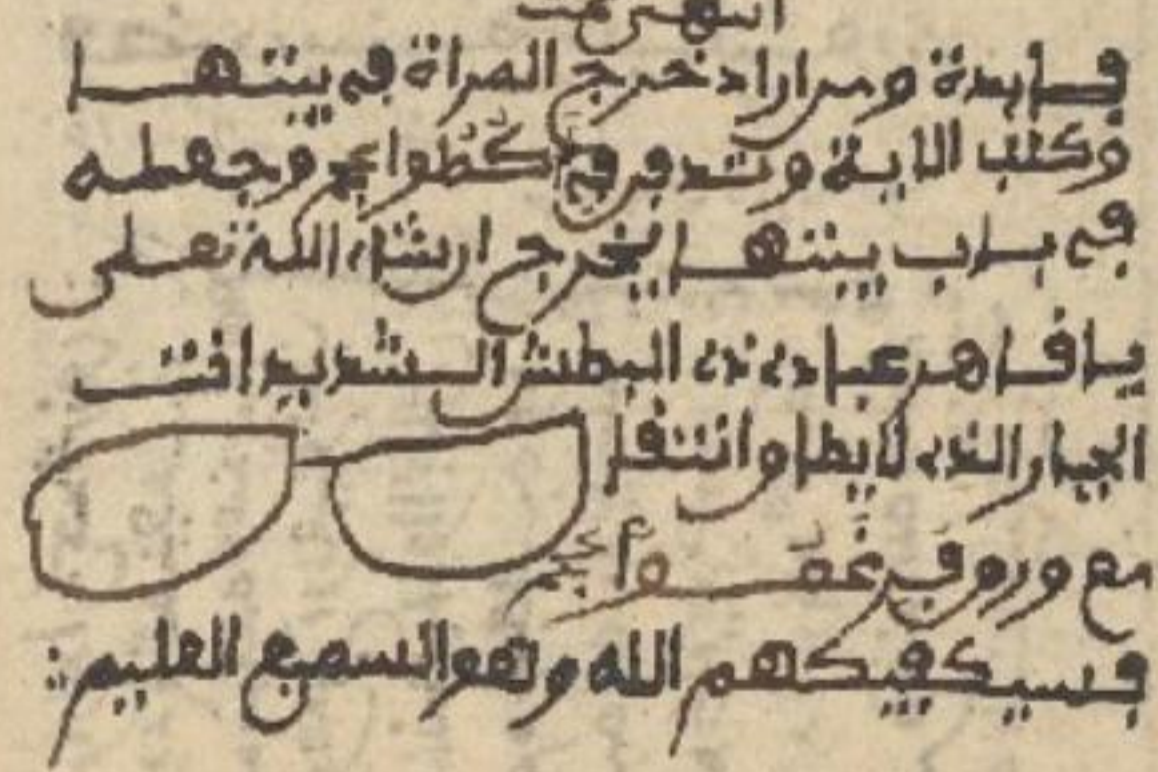 انتهى
فايدة ومن اراد خرج المراة في بيتها
وكتب الاية وتدفن في كظوا وجعله
في باب بيتها يخرج ان شاء الله تعلى
يا قاهر عبادى ذى البطش الشديد انت
الجبار الذى لا يطاو انتقا
مع وروق
فسيكفيكهم الله وهو السميع العليم